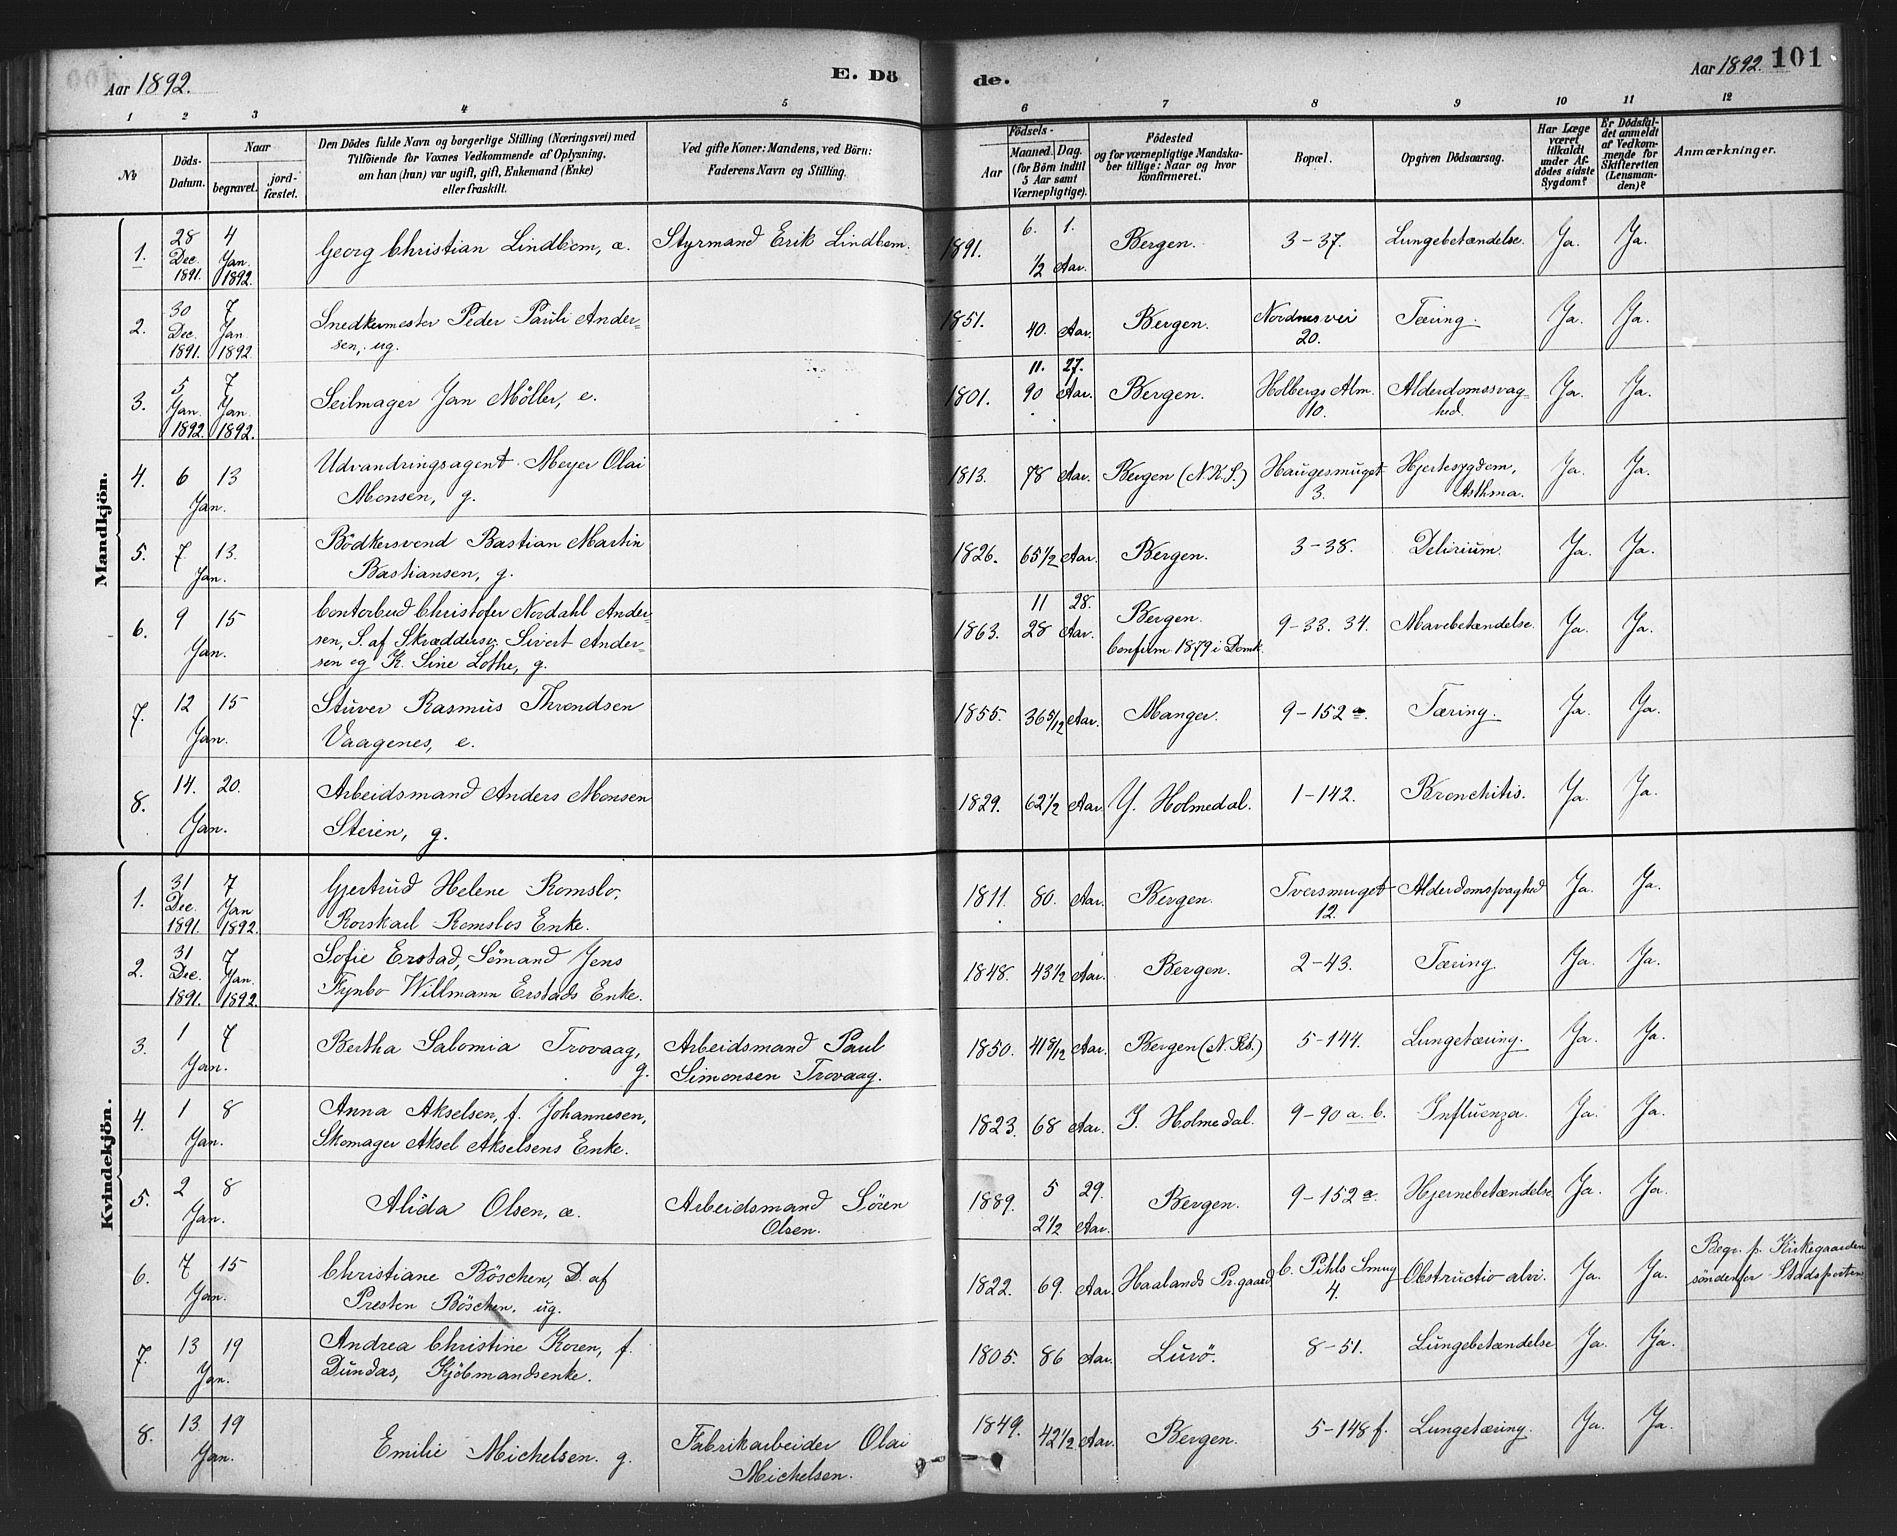 Aar 1892.
E. Dö
de.
Aar 1892. 101
1 2 3 4 5 6 7 8 9 10 11 12
No
Döds-
Datum.
Naar
begravet.
jord-
fæstet.
Den Dödes fulde Navn og borgerlige Stilling (Næringsvei) med
Tilföiende for Voxnes Vedkommende af Oplysning,
om han (hun) var ugift, gift, Enkemand (Enke)
eller fraskilt.
Ved gifte Koner: Mandens, ved Börn:
Faderens Navn og Stilling.
Födsels-
Aar
Maaned. Dag.
(for Börn indtil
5 Aar samt
Værnepligtige).
Födested
og for værnepligtige Mandska-
ber tillige: Naar og hvor
konfirmeret.
Bopæl.
Opgiven Dödsaarsag.
Har Læge
været
tilkaldt
under Af-
dödes sidste
Sygdom?
Er Dödsfal-
det anmeldt
af Vedkom-
mende for
Skifteretten
(Lensman-
den)?
Anmærkninger.
Mandkjön.
1. 28 Dec. 1891. 4 Jan. 1892. Georg Christian Lindbom, æ. Styrmand Erik Lindbom. 1891. 6. 1. 1/2 Aar. Bergen. 3-37. Lungebetændelse. Ja. Ja.
2. 30 Dec. 1891. 7 Jan. 1892 Snedkermester Peder Pauli Ander-
sen, ug. 1851. 40. Aar. Bergen. Nordnesvei 20. Tæring. Ja. Ja.
3. 5 Jan. 1892. 7 Jan. 1892. Seilmager Jan Möller, e. 1801. 11. 27. 90 Aar. Bergen. Holbergs Alm. 10. Alderdomssvag-
hed. Ja. Ja.
4. 6 Jan. 13 Udvandringsagent Meyer Olai
Monsen, g. 1813. 78 Aar. Bergen (N.K.S.) Haugesmuget 3. Hjertesygdom,
Asthma. Ja. Ja.
5. 7. Jan. 13. Bödkersvend Bastian Martin
Bastiansen, g. 1826. 65 1/2 Aar. Bergen. 3-38. Delirium. Ja. Ja.
6. 9 Jan. 15 Contorbud Christofer Nordahl Ander-
sen, S. af Skræddersv. Sivert Ander-
sen og K. Sine Lothe, g. 1863. 11 28. 28 Aar. Bergen.
Confirm. 1879 i Domk. 9-33. 34. Mavebetændelse. Ja. Ja.
7. 12 Jan. 15 Stuver Rasmus Throndsen
Vaagenes, e. 1855. 36 5/12 Aar. Manger. 9-152 a. Tæring. Ja. Ja.
8. 14. Jan. 20. Arbeidsmand Anders Monsen
Steien, g. 1829. 62 1/2 Aar. Y. Holmedal. 1-142. Bronchitis. Ja. Ja.
Kvindekjön.
1. 31 Dec. 1891. 7 Jan 1892. Gjertrud Helene Romslo,
Rorskarl Romslos Enke. 1811. 80. Aar. Bergen. Tversmuget 12. Alderdomssvaghed Ja. Ja.
2. 31 Dec. 1891. 7 Jan. 1892. Sofie Erstad, Sömand Jens
Fynbo Willmann Erstads Enke. 1848. 43 1/2 Aar. Bergen. 2-43. Tæring Ja. Ja.
3. 1 Jan. 7 Bertha Salomia Trovaag,
g. Arbeidsmand Paul
Simonsen Trovaag. 1850. 41 8/12 Aar. Bergen (N.Kb.) 5-144. Lungetæring. Ja. Ja.
4. 1 Jan. 8 Anna Akselsen, f. Johannesen,
Skomager Aksel Akselsens Enke. 1823. 68 Aar. I. Holmedal. 9-90 a. b. Influenza. Ja. Ja.
5. 2 Jan. 8 Alida Olsen, æ. Arbeidsmand Sören
Olsen. 1889. 5 29. 2 1/2 Aar. Bergen. 9-152 a. Hjernebetændelse Ja. Ja.
6. 7 Jan. 15 Christiane Böschen, D. af
Presten Böschen, ug. 1822. 69. Aar. Haalands Pr.gaard C. Pihls Smug 4. Obstructio alvi. Ja. Ja. Begr. p. Kirkegaarden
söndenfor Stadsporten
7. 13 Jan. 19 Andrea Christine Koren, f.
Dundas, Kjöbmandsenke. 1805. 86 Aar. Lurö. 8-51. Lungebetændelse Ja. Ja.
8. 13. Jan. 19 Emilie Michelsen. g. Fabrikarbeider Olai
Michelsen. 1849. 42 1/2 Aar. Bergen. 5-148 f. Lungetæring. Ja. Ja.